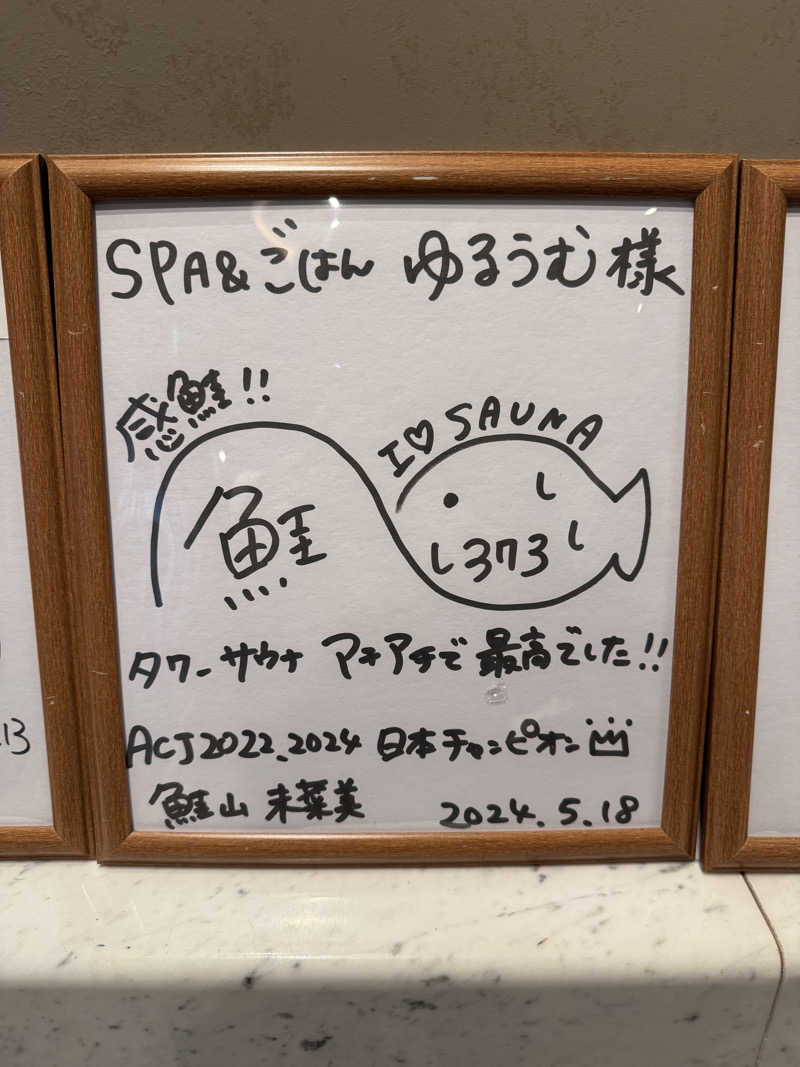 SPA&ごはん ゆるうむ様
感鮭!!
I♡SAUNA
鮭
し373し
し
タワーサウナ アチアチで最高でした!!
ACJ2022.2024 日本チャンピオン
鮭山 未菜美 2024.5.18
13